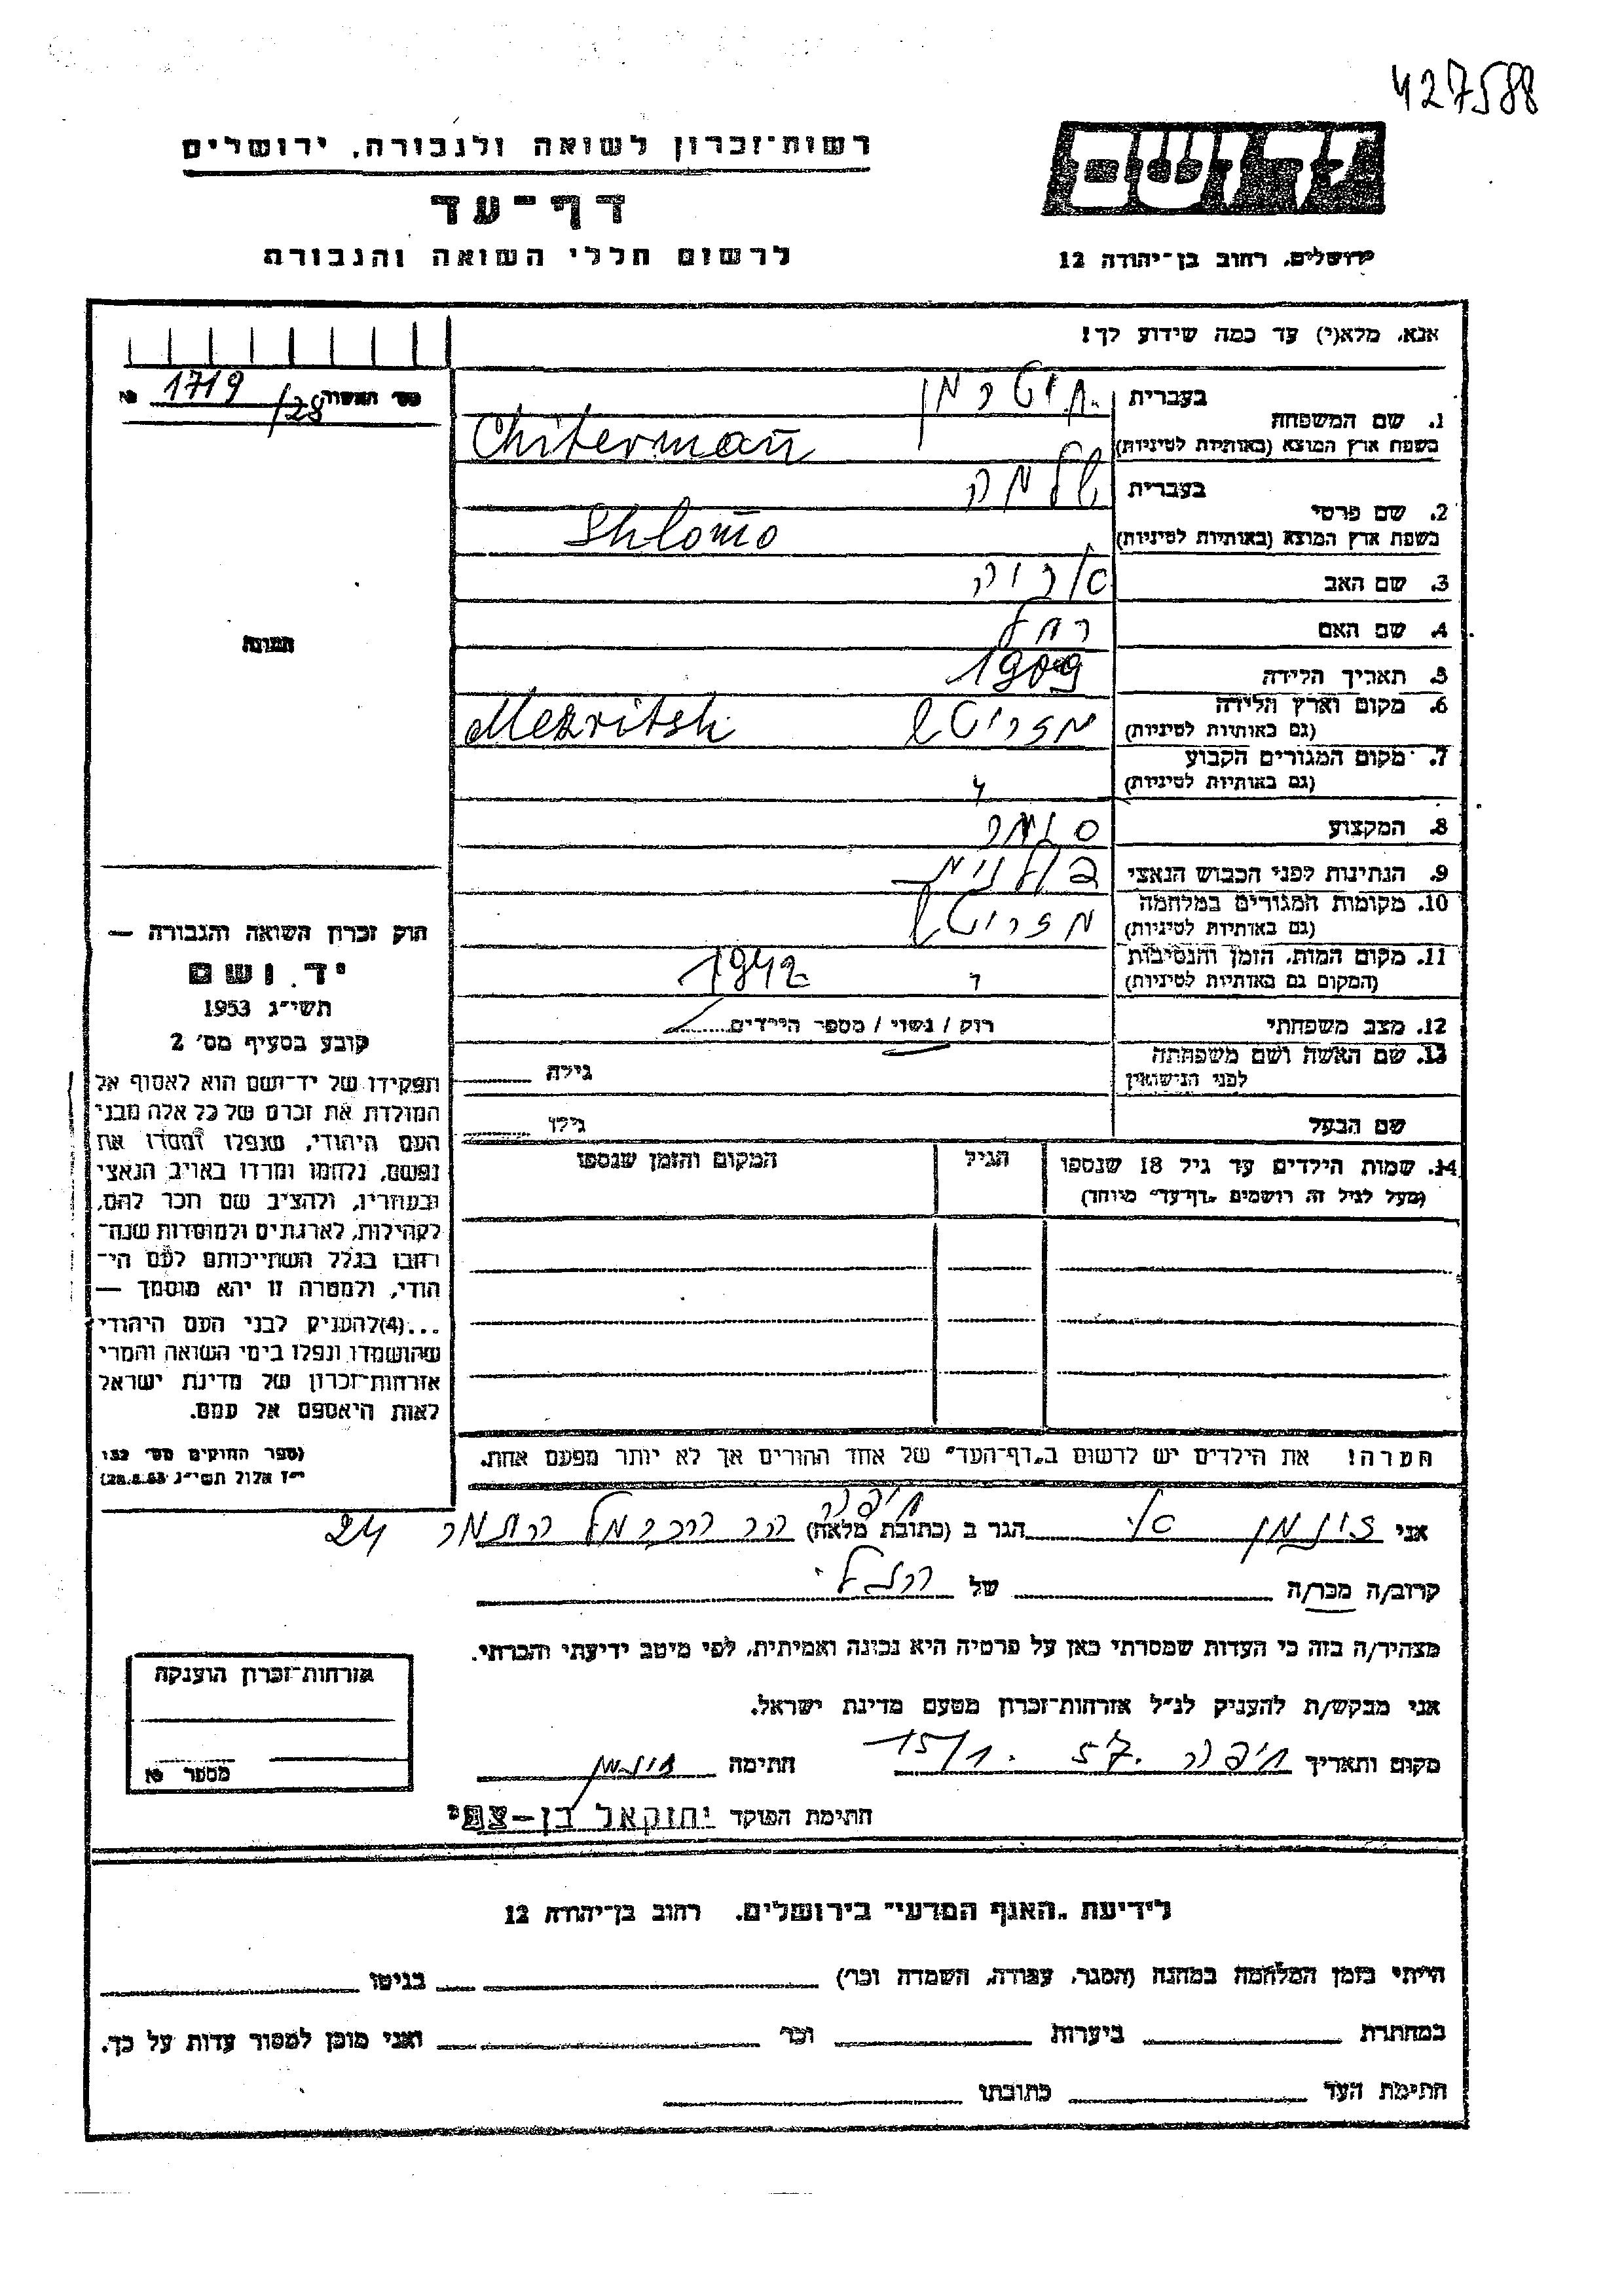 427588
רשות־זכרון לשואה ולגבורה, ירושלים
דף־עד
לרשום חללי השואה והגבורה
יד ושם
ירושלים, רחוב בן־יהודה 12
אנא, מלא(י) עד כמה שידוע לך!
מס' האשרה 1719/28 №
1. שם המשפחה בעברית חיטרמן
בשפת ארץ המוצא (באותיות לטיניות) Chiterman
2. שם פרטי בעברית שלמה
בשפת ארץ המוצא (באותיות לטיניות) Shlomo
3. שם האב
4. שם האם רחל
5. תאריך הלידה 1909
6. מקום וארץ הלידה (גם באותיות לטיניות) מזריטש Mezritsh
7. מקום המגורים הקבוע (גם באותיות לטיניות) "
8. המקצוע סנדלר
9. הנתינות לפני הכבוש הנאצי פולנית
10. מקומות המגורים במלחמה (גם באותיות לטיניות) מזריטש
11. מקום המות, הזמן והנסיבות (המקום גם באותיות לטיניות) " 1942
12. מצב משפחתי רווק / נשוי / מספר הילדים
13. שם האשה ושם משפחתה לפני הנישואין גילה
שם הבעל גילו
14. שמות הילדים עד גיל 18 שנספו (מעל לגיל זה רושמים „דף־עד" מיוחד) הגיל המקום והזמן שנספו
התמונה
חוק זכרון השואה והגבורה —
יד ושם
תשי"ג 1953
קובע בסעיף מס' 2
תפקידו של יד־ושם הוא לאסוף אל
המולדת את זכרם של כל אלה מבני
העם היהודי, שנפלו ומסרו את
נפשם, נלחמו ומרדו באויב הנאצי
ובעוזריו, ולהציב שם וזכר להם,
לקהילות, לארגונים ולמוסדות שנה־
רחבו בגלל השתייכותם לעם הי־
הודי, ולמטרה זו יהא מוסמך —
...(4) להעניק לבני העם היהודי
שהושמדו ונפלו בימי השואה והמרי
אזרחות־זכרון של מדינת ישראל
לאות היאספם אל עמם.
(ספר החוקים מס' 132
י"ז אלול תשי"ג 28.8.53)
הערה! את הילדים יש לרשום ב„דף־העד" של אחד ההורים אך לא יותר מפעם אחת.
אני זוקמן הגר ב (כתובת מלאה) חיפה הר הכרמל התמר 24
קרוב/ה מכר/ה של הנ"ל
מצהיר/ה בזה כי העדות שמסרתי כאן על פרטיה היא נכונה ואמיתית, לפי מיטב ידיעתי והכרתי.
אני מבקש/ת להעניק לנ"ל אזרחות־זכרון מטעם מדינת ישראל.
מקום ותאריך חיפה 15/1.57 חתימה
חתימת הפוקד יחזקאל בן-צבי
אזרחות־זכרון הוענקה
מספר №
לידיעת „האגף המדעי" בירושלים, רחוב בן־יהודה 12
הייתי בזמן המלחמה במחנה (הסגר, עבודה, השמדה וכו') בגיטו
במחתרת ביערות וכו' ואני מוכן למסור עדות על כך.
חתימת העד כתובתו